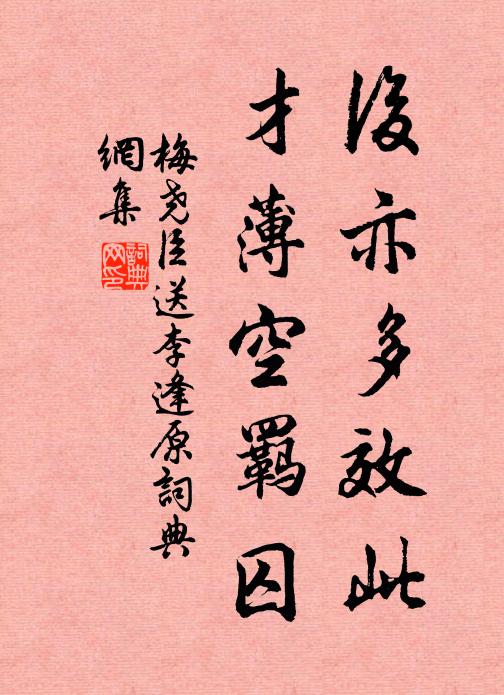 後亦多效此
才薄空羈囚
梅堯臣送李逢原詞典
網集
詞典
网印